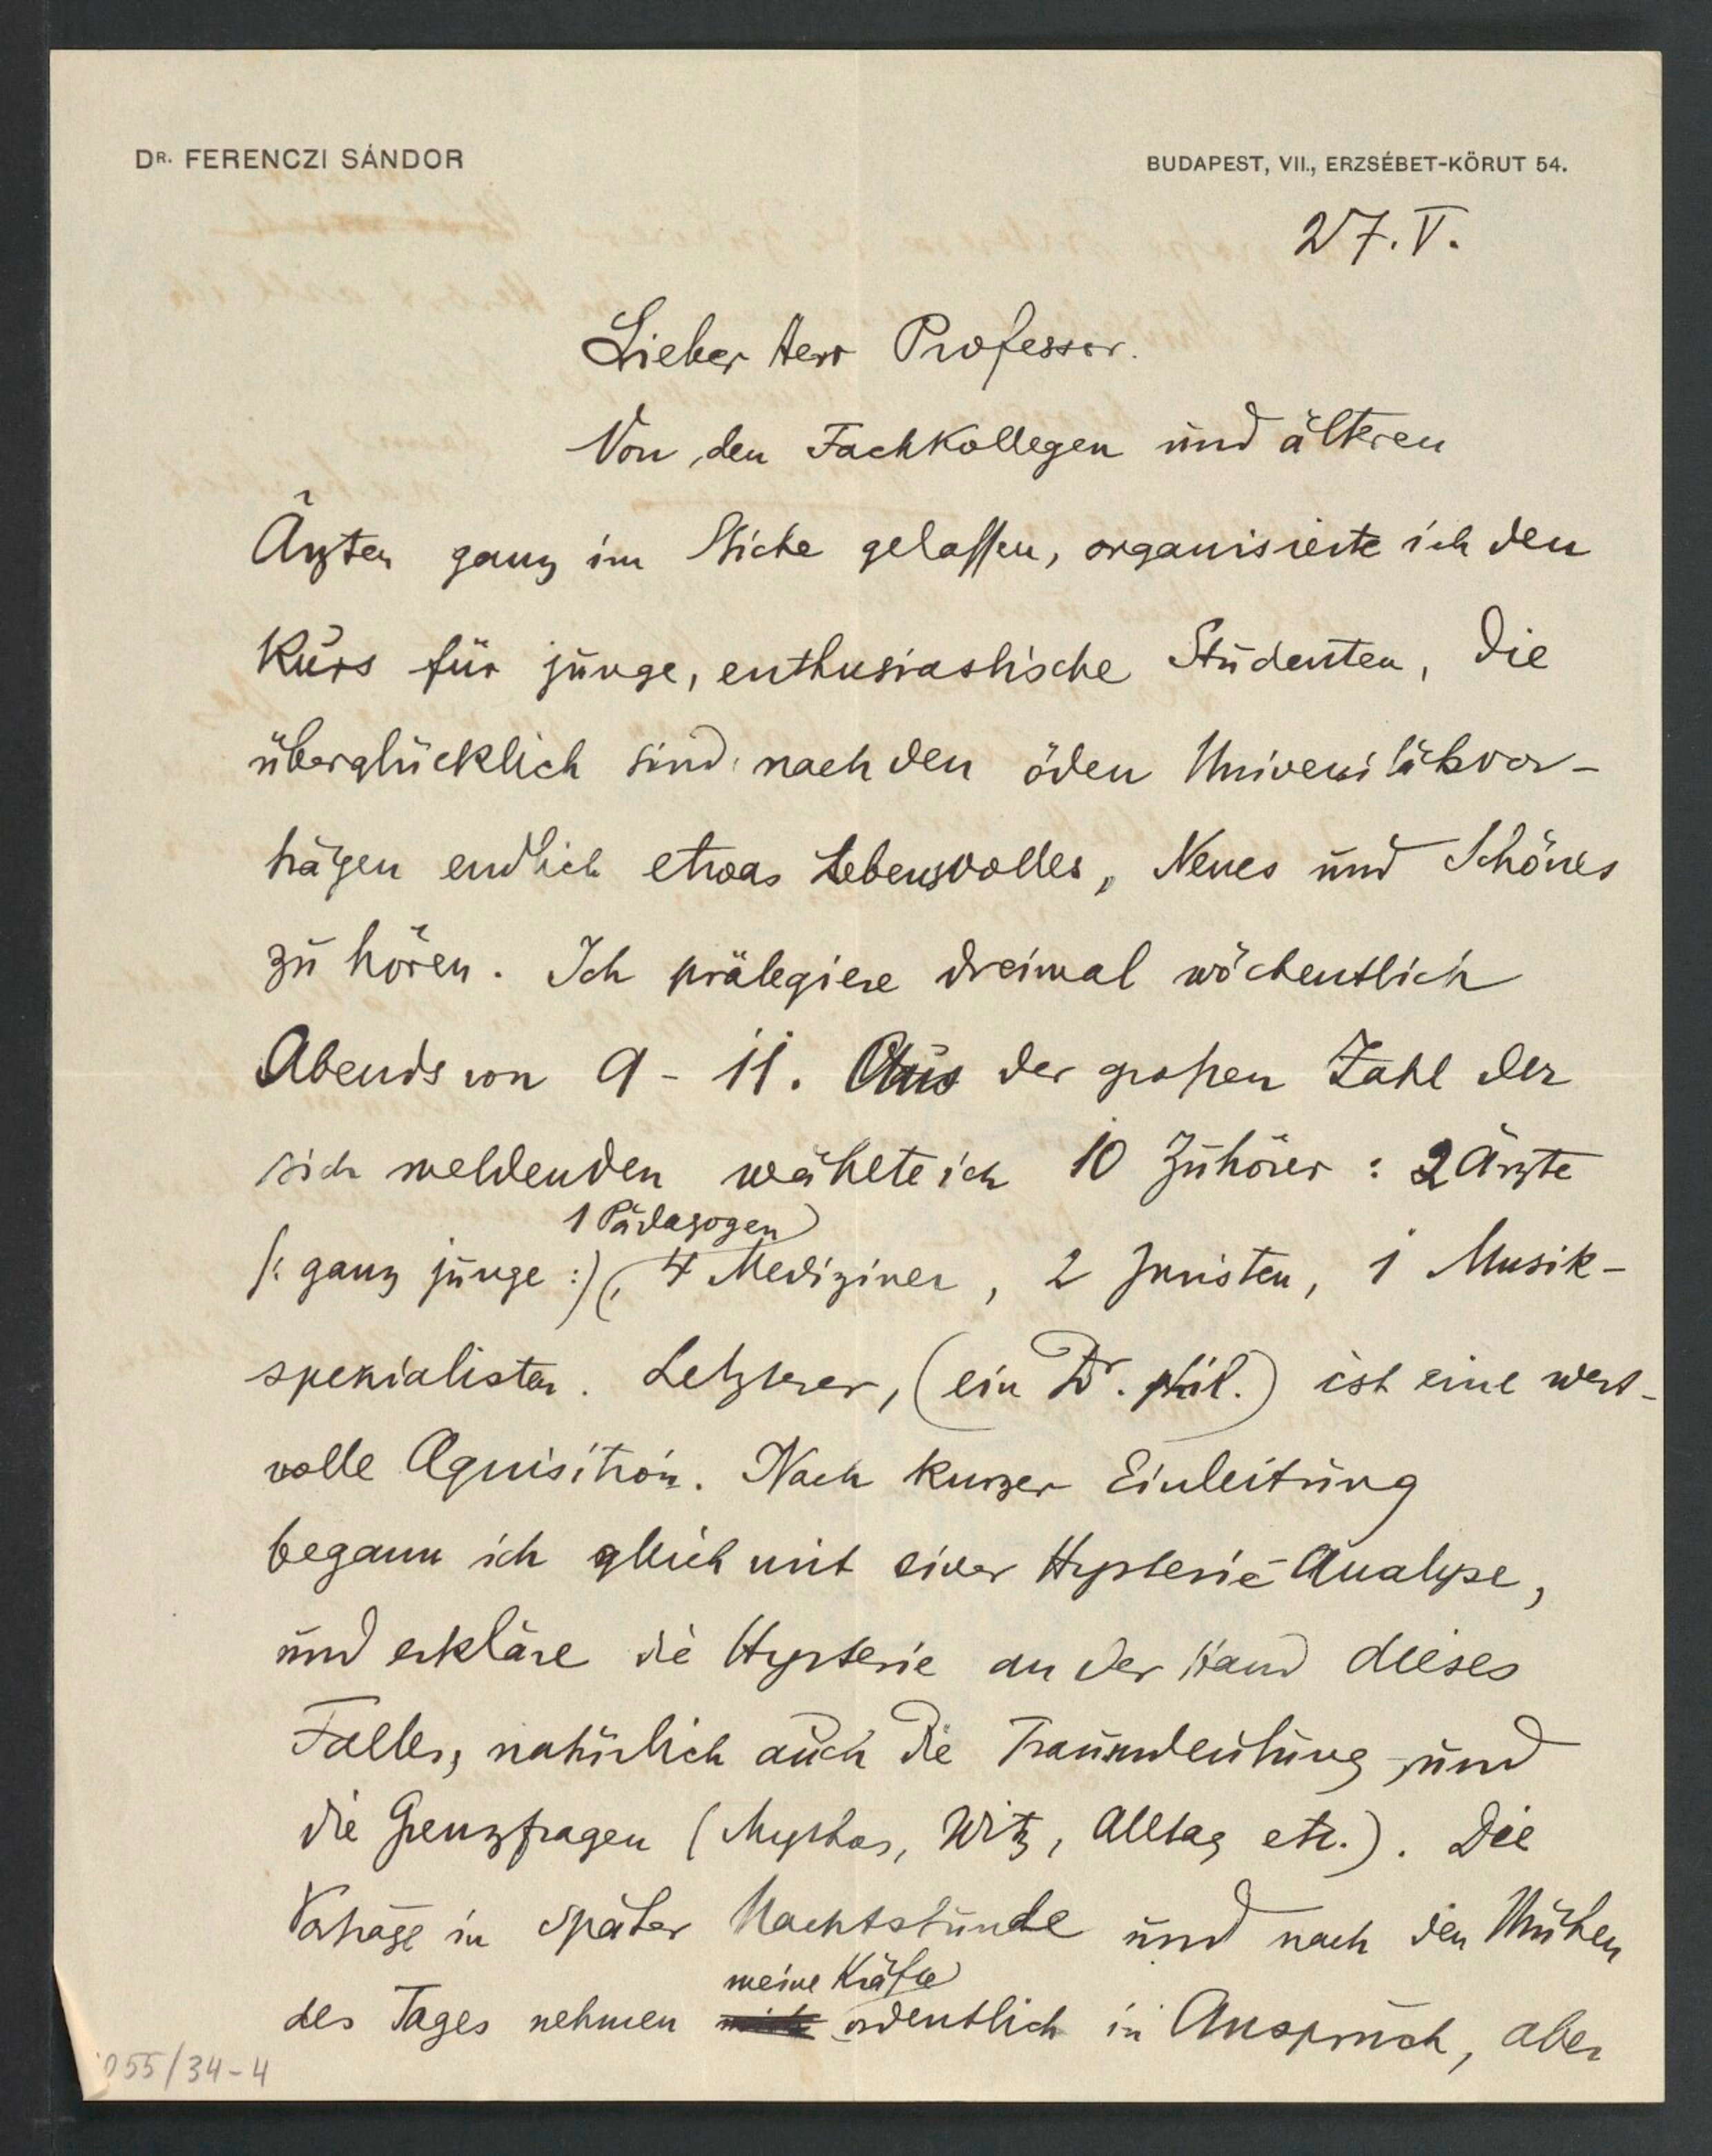 DR. FERENCZI SÁNDOR
BUDAPEST, VII., ERZSÉBET-KÖRUT 54.
27. V.
Lieber Herr Professor.
Von den Fachkollegen und älteren
Ärzten ganz im Stiche gelassen, organisierte ich den
Kurs für junge, enthusiastische Studenten, die
überglücklich sind nach den öden Universitätsvor-
trägen endlich etwas Lebensvolles, Neues und Schönes
zu hören. Ich prälegiere dreimal wöchentlich
Abends von 9 - 11. Aus der großen Zahl der
sich meldenden wählte ich 10 Zuhörer: 2 Ärzte
1 Pädagogen
/: ganz junge :/, 4 Mediziner, 2 Juristen, 1 Musik-
spezialisten. Letzterer, (ein Dr. phil.) ist eine wert-
volle Aquisition. Nach kurzer Einleitung
begann ich gleich mit einer Hysterie-Analyse,
und erkläre die Hysterie an der Hand dieses
Falles, natürlich auch die Traumdeutung und
die Grenzfragen (Mythos, Witz, Alltag etc.). Die
Vorträge in später Nachtstunde und nach den Mühen
meine Kräfte
des Tages nehmen ordentlich in Anspruch, aber
055/34-4